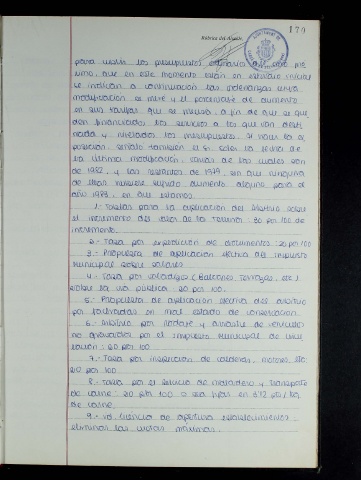 170
Rúbrica del Alcalde
para nivelar los presupuestos, ordinario del año pró
ximo, que en este momento están en estudio inicial
se indican a continuación las ordenanzas cuya
modificación se cree y el porcentaje de aumento
en sus tarifas que se precisa, a fin de que se que
den financiados los servicios a los que van desti
nada y nivelados los presupuestos. Si nous
posición. señala también el Sr. la fecha de
la última modificación, varias de las cuales son
de 1972, y las restantes de 1979, sin que ninguna
de ellas hubiese sufrido aumento alguno para el
año 1973, en que estamos.
1.- Tarifas para la aplicación del Arbitrio sobre
el incremento del valor de los Terrenos: 30 por 100 de
incremento.
2.- Tasa por expedición de documentos: 20 por 100
3.- Propuesta de aplicación efectiva del impuesto
municipal sobre solares.
4.- Tasa por voladizos (Balcones, Terrazas, etc.)
sobre la vía pública. 20 por 100.
5.- Propuesta de aplicación efectiva del arbitrio
por fachadas en mal estado de conservación.
6.- Arbitrio por rodaje y arrastre de vehículos
no gravados por el impuesto municipal de circu
lación: 20 por 100.
7.- Tasa por inspección de calderas, motores, etc.
20 por 100
8.- Tasa por el servicio de matadero y transporte
de carne: 20 por 100 o sea fijar en 3'12 pts/kg.
de carne.
9.- Licencia de apertura establecimientos:
eliminar las cuotas máximas.